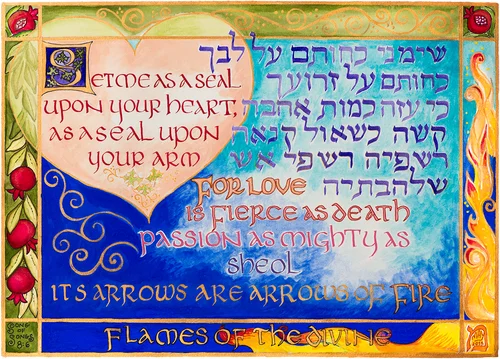 Set me as a seal
upon your heart,
as a seal upon
your arm
שימני כחותם על לבך
כחותם על זרועך
כי עזה כמות אהבה
קשה כשאול קנאה
רשפיה רשפי אש
שלהבתיה
FOR LOVE
is fierce as death
passion as mighty as
sheol
ITS ARROWS ARE ARROWS OF FIRE
FLAMES OF THE DIVINE
SONG
OF
SONGS
8:6